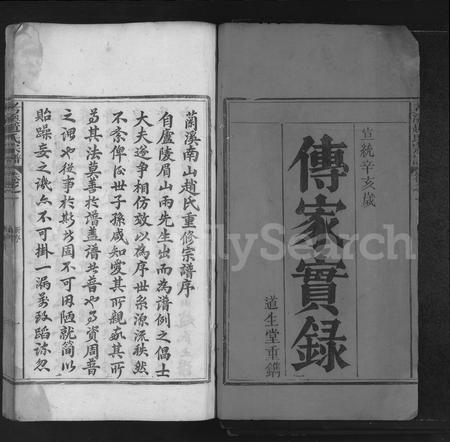 宣統辛亥歲
傳家實錄
道生堂重鐫
蘭溪南山趙氏重修宗譜序
自廬陵眉山兩先生出而為譜例之倡士
大夫迨争相仿效以為序世系源流秩然
不紊俾后世子孫咸知愛其所親敬其所
尊其法莫善於譜蓋譜者普也資周普
之謂也從事於斯者固不可因陋就簡以
貽躁妄之譏亦不可掛一漏萬致蹈
FamilySearch